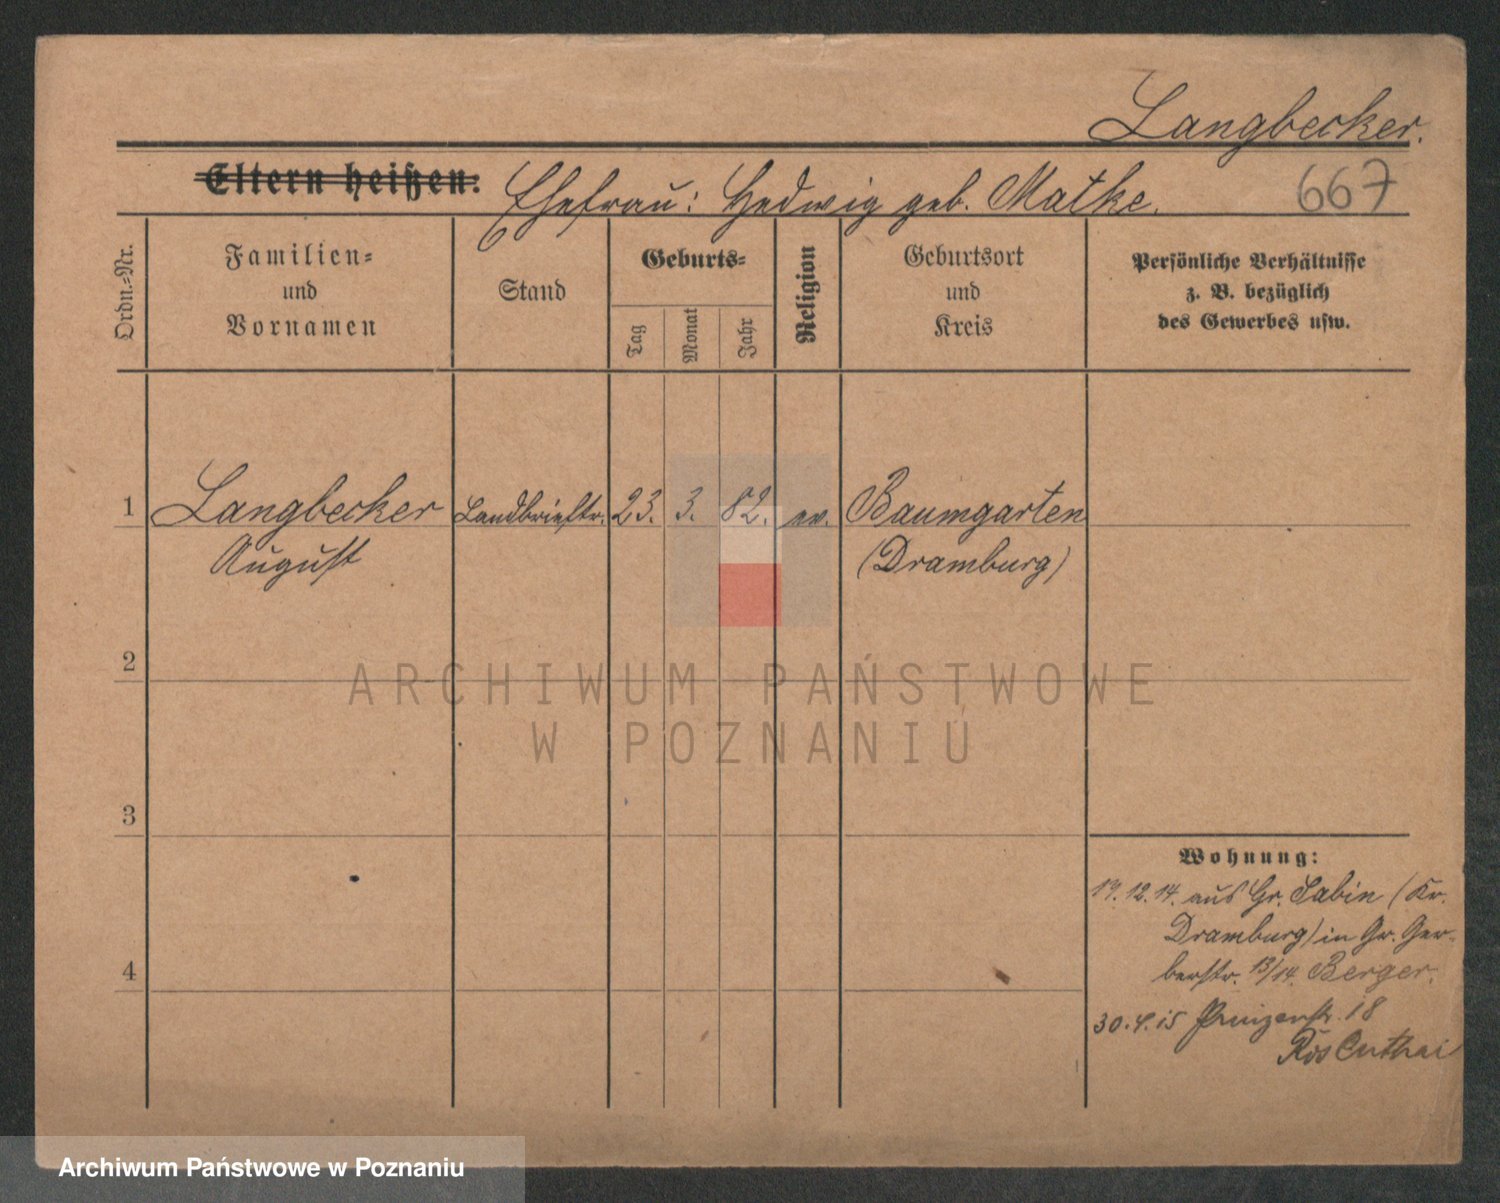 Langbecker.
Eltern heißen: Ehefrau: Hedwig geb. Matke.
667
Ordn.-Nr.
Familien-
und
Vornamen
Stand
Geburts-
Tag
Monat
Jahr
Religion
Geburtsort
und
Kreis
Persönliche Verhältnisse
z. B. bezüglich
des Gewerbes usw.
1 Langbecker Landbrieftr. 23. 3. 82. ev. Baumgarten
August (Dramburg)
2
3
4
Wohnung:
19.12.14. aus Gr. Sabin (Kr.
Dramburg) in Gr. Ger-
berstr. 13/14. Berger.
30.4.15 Prinzenstr. 18
ARCHIWUM PAŃSTWOWE
W POZNANIU
Archiwum Państwowe w Poznaniu